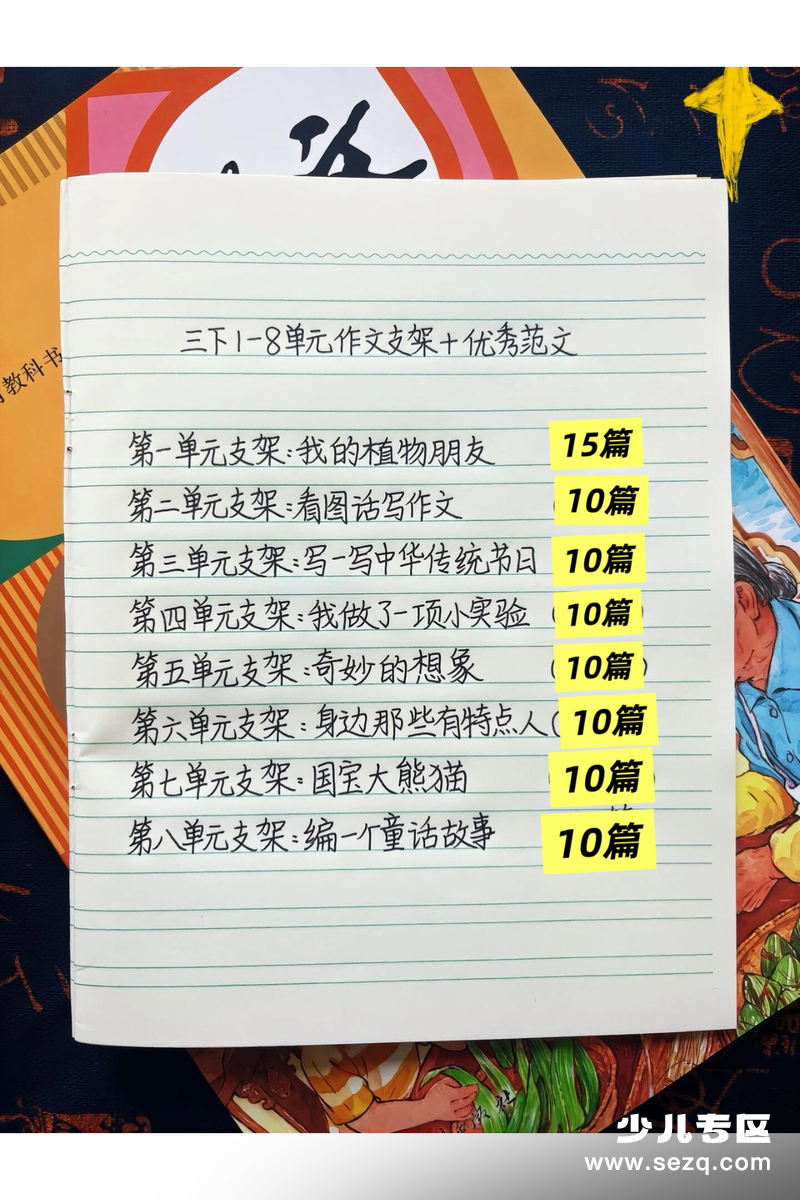 教科书
三下1-8单元作文支架+优秀范文
第一单元支架:我的植物朋友 15篇
第二单元支架:看图话写作文 10篇
第三单元支架:写一写中华传统节日 10篇
第四单元支架:我做了一项小实验 10篇
第五单元支架:奇妙的想象 10篇
第六单元支架:身边那些有特点人( 10篇
第七单元支架:国宝大熊猫 10篇
第八单元支架:编一个童话故事 10篇
少儿专区
www.sezq.com